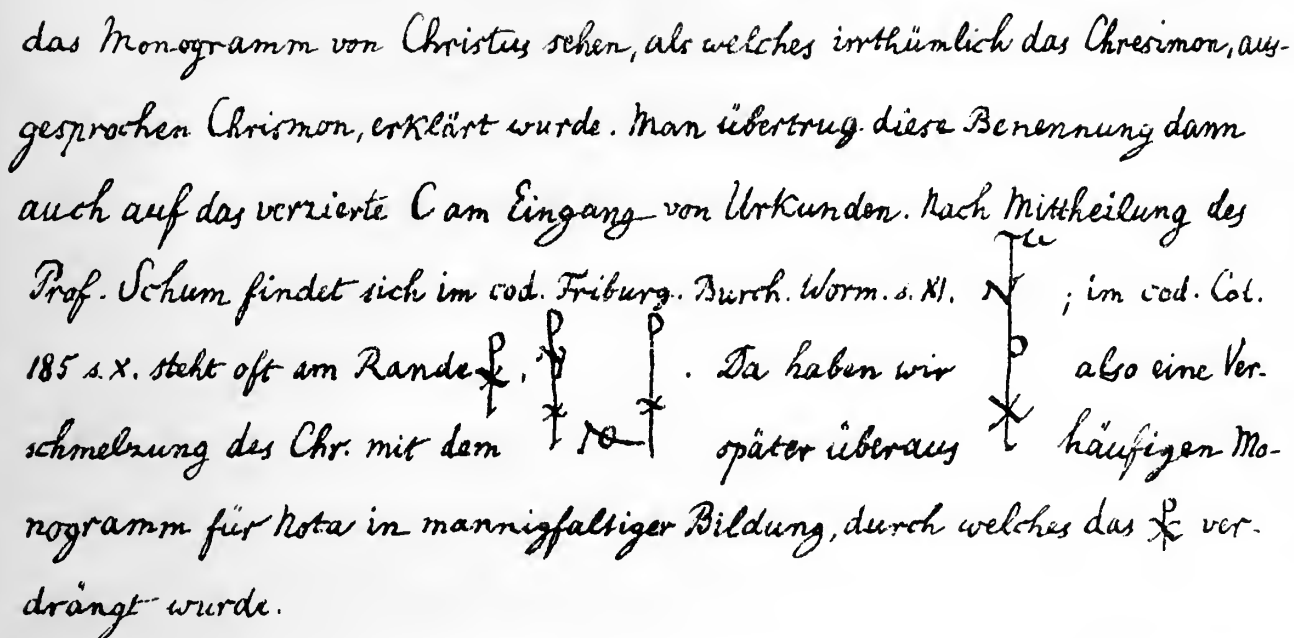 das Monogramm von Christus sehen, als welches irrthümlich das Chresimon, aus-
gesprochen Chrismon, erklärt wurde. Man übertrug diese Benennung dann
auch auf das verzierte C am Eingang von Urkunden. Nach Mittheilung des
Prof. Schum findet sich im cod. Friburg. Burch. Worm. s. XI. ; im cod. Col.
185 s. X. steht oft am Rande ⳩, . Da haben wir also eine Ver-
schmelzung des Chr. mit dem später überaus häufigen Mo-
nogramm für Nota in mannigfaltiger Bildung, durch welches das ⳩ ver-
drängt wurde.